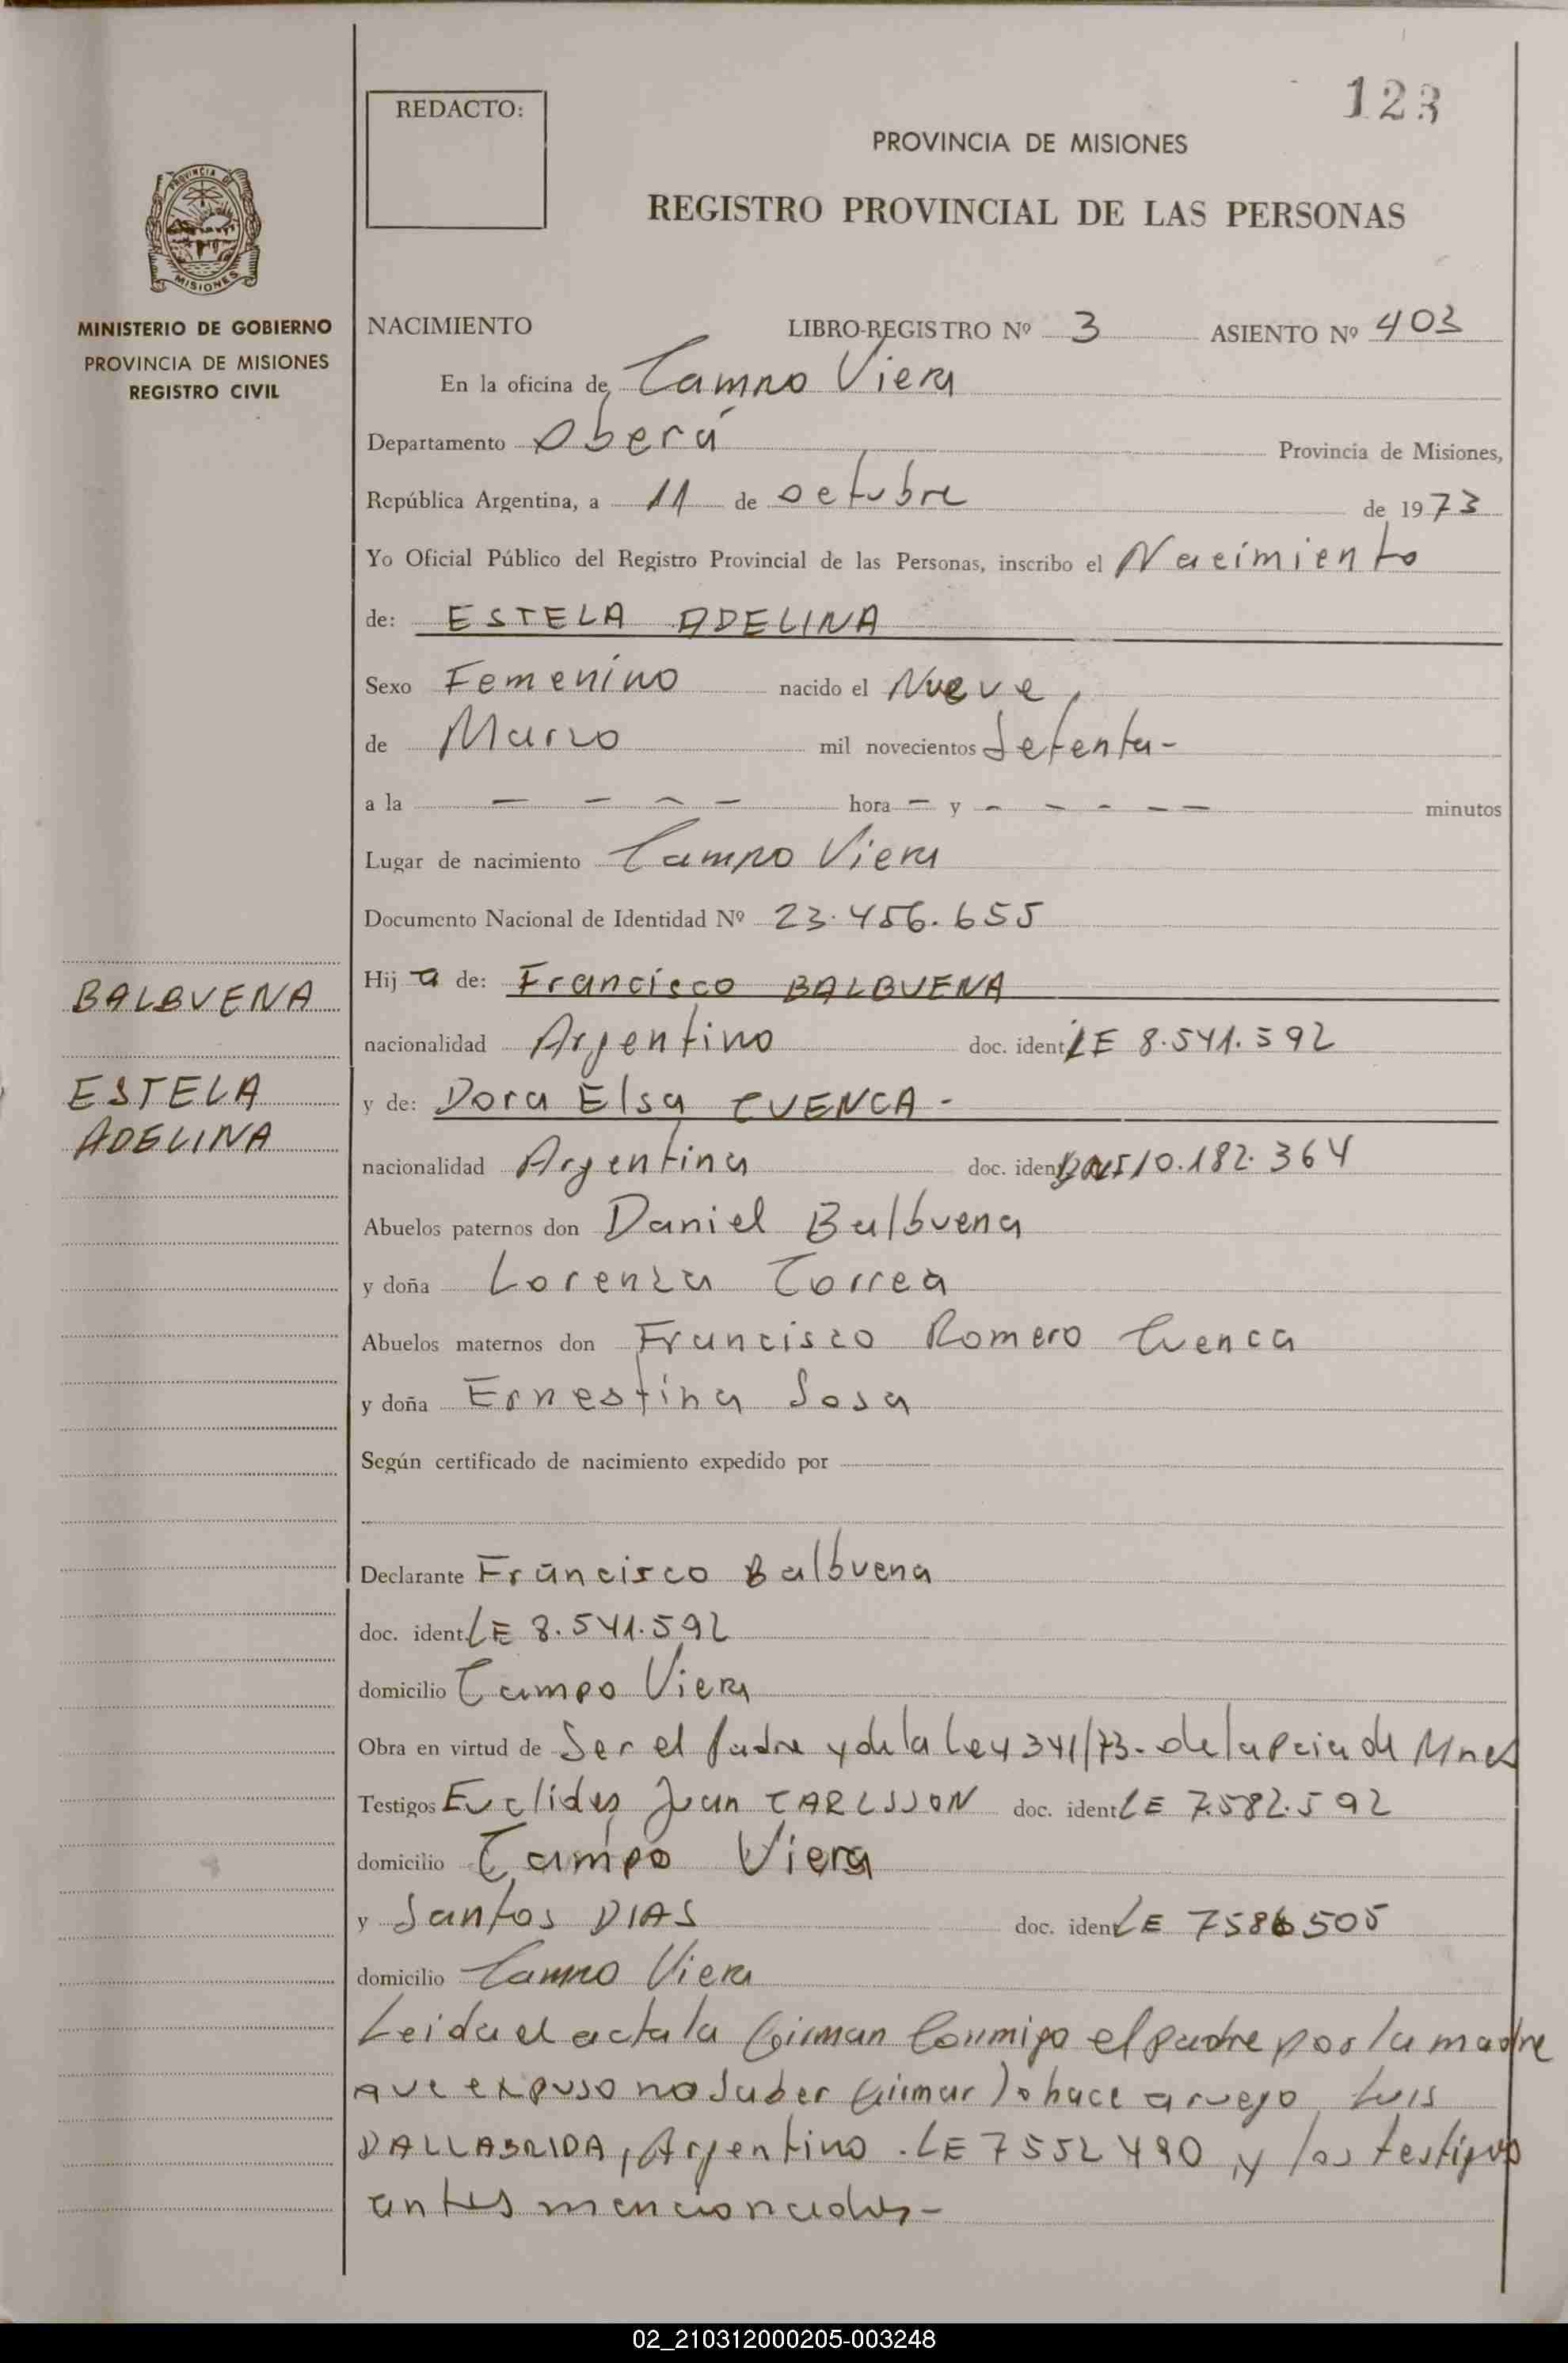 123
REDACTO:
PROVINCIA DE MISIONES
REGISTRO PROVINCIAL DE LAS PERSONAS
PROVINCIA DE
MISIONES
MINISTERIO DE GOBIERNO
PROVINCIA DE MISIONES
REGISTRO CIVIL
NACIMIENTO LIBRO-REGISTRO Nº 3 ASIENTO Nº 403
En la oficina de Campo Viera
Departamento Oberá Provincia de Misiones,
República Argentina, a 11 de octubre de 1973
Yo Oficial Público del Registro Provincial de las Personas, inscribo el Nacimiento
de: ESTELA ADELINA
Sexo Femenino nacido el Nueve,
de Marzo mil novecientos Setenta-
a la - - - - hora - y - - - - - minutos
Lugar de nacimiento Campo Viera
Documento Nacional de Identidad Nº 23.456.655
BALBUENA
Hij a de: Francisco BALBUENA
nacionalidad Argentino doc. ident. LE 8.541.592
ESTELA
ADELINA
y de: Dora Elsa CUENCA -
nacionalidad Argentina doc. ident. DNI 10.182.364
Abuelos paternos don Daniel Balbuena
y doña Lorenza Correa
Abuelos maternos don Francisco Romero Cuenca
y doña Ernestina Sosa
Según certificado de nacimiento expedido por
Declarante Francisco Balbuena
doc. ident. LE 8.541.592
domicilio Campo Viera
Obra en virtud de Ser el padre y de la Ley 341/73- de la Pcia de Mnes
Testigos Euclides Juan CARLSSON doc. ident LE 7.582.592
domicilio Campo Viera
y Santos DIAS doc. ident LE 7586505
domicilio Campo Viera
Leida el acta la firman Conmigo el padre por la madre
que expuso no Saber firmar lo hace a ruego Luis
DALLABRIDA, Argentino. LE 7552490, y los testigos
antes mencionados-
02_210312000205-003248